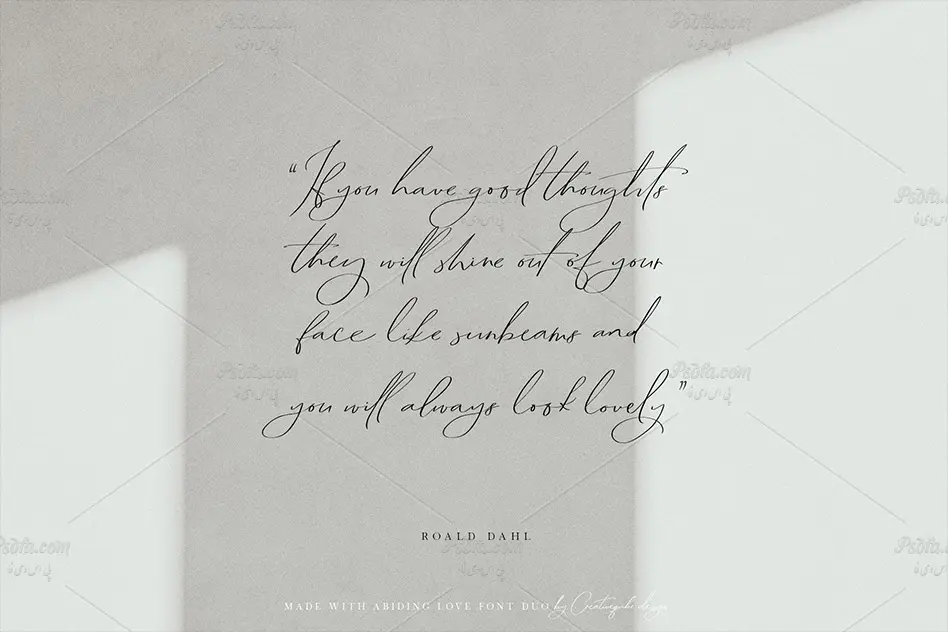 “If you have good thoughts
they will shine out of your
face like sunbeams and
you will always look lovely”
ROALD DAHL
MADE WITH ABIDING LOVE FONT DUO by Creativeqube design
Psdfa.com
Psdfa.com
Psdfa.com
Psdfa.com
Psdfa.com
Psdfa.com
Psdfa.com
Psdfa.com